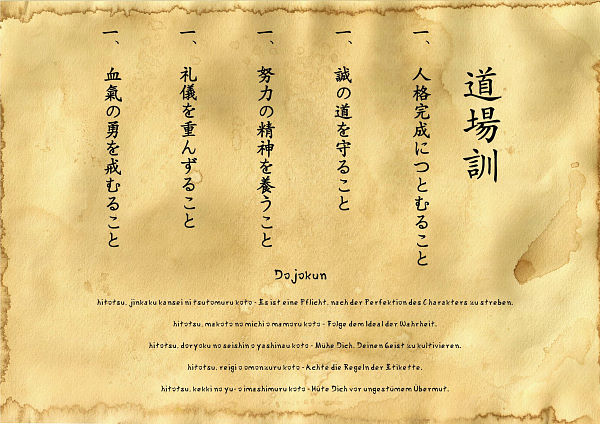 道場訓
一、人格完成につとむること
一、誠の道を守ること
一、努力の精神を養うこと
一、礼儀を重んずること
一、血氣の勇を戒むること
Dojokun
hitotsu, jinkaku kansei ni tsutomuru koto - Es ist eine Pflicht, nach der Perfektion des Charakters zu streben.
hitotsu, makoto no michi o mamoru koto - Folge dem Ideal der Wahrheit.
hitotsu, doryoku no seishin o yashinau koto - Mühe Dich, Deinen Geist zu kultivieren.
hitotsu, reigi o omonzuru koto - Achte die Regeln der Etikette.
hitotsu, kekki no yu- o imashimuru koto - Hüte Dich vor ungestümem Übermut.